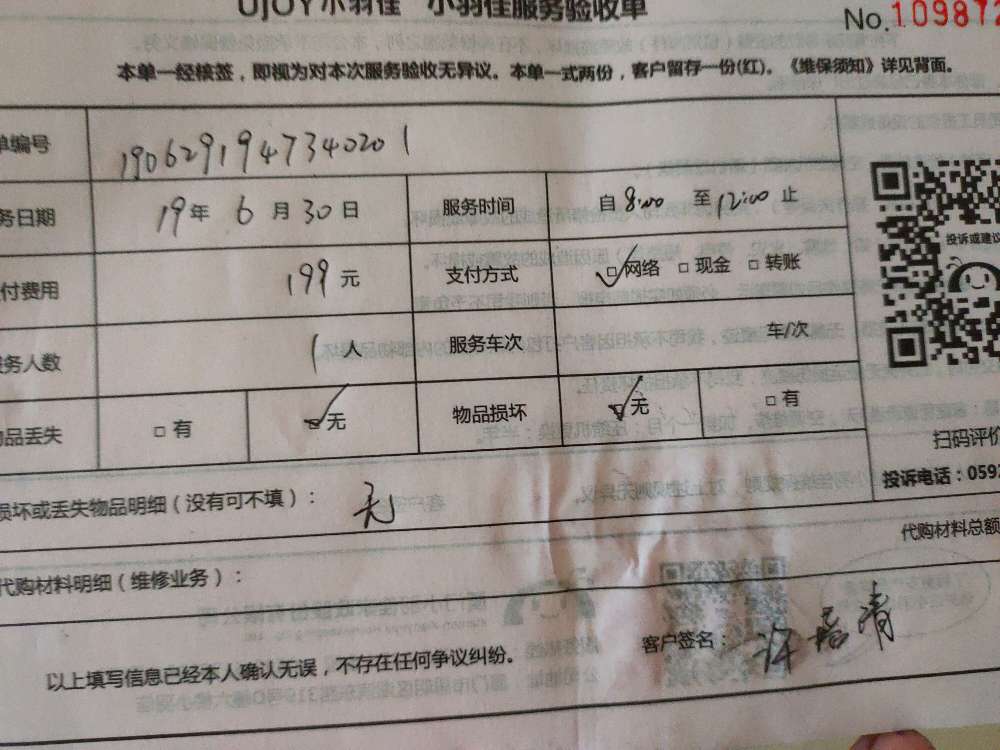 UJOY小羽佳 小羽佳服务验收单
No.109872
本单一经核签，即视为对本次服务验收无异议。本单一式两份，客户留存一份(红)。《维保须知》详见背面。
单编号 190629194734020 1
务日期 19年 6月30日 服务时间 自8:00 至12:00止
付费用 199元 支付方式 ☑网络 □现金 □转账
投诉或建议
服务人数 1人 服务车次 车/次
物品丢失 □有 ☑无 物品损坏 ☑无 □有
扫码评价
投诉电话：0592
损坏或丢失物品明细（没有可不填）： 无
代购材料总额
代购材料明细（维修业务）：
以上填写信息已经本人确认无误，不存在任何争议纠纷。 客户签名：